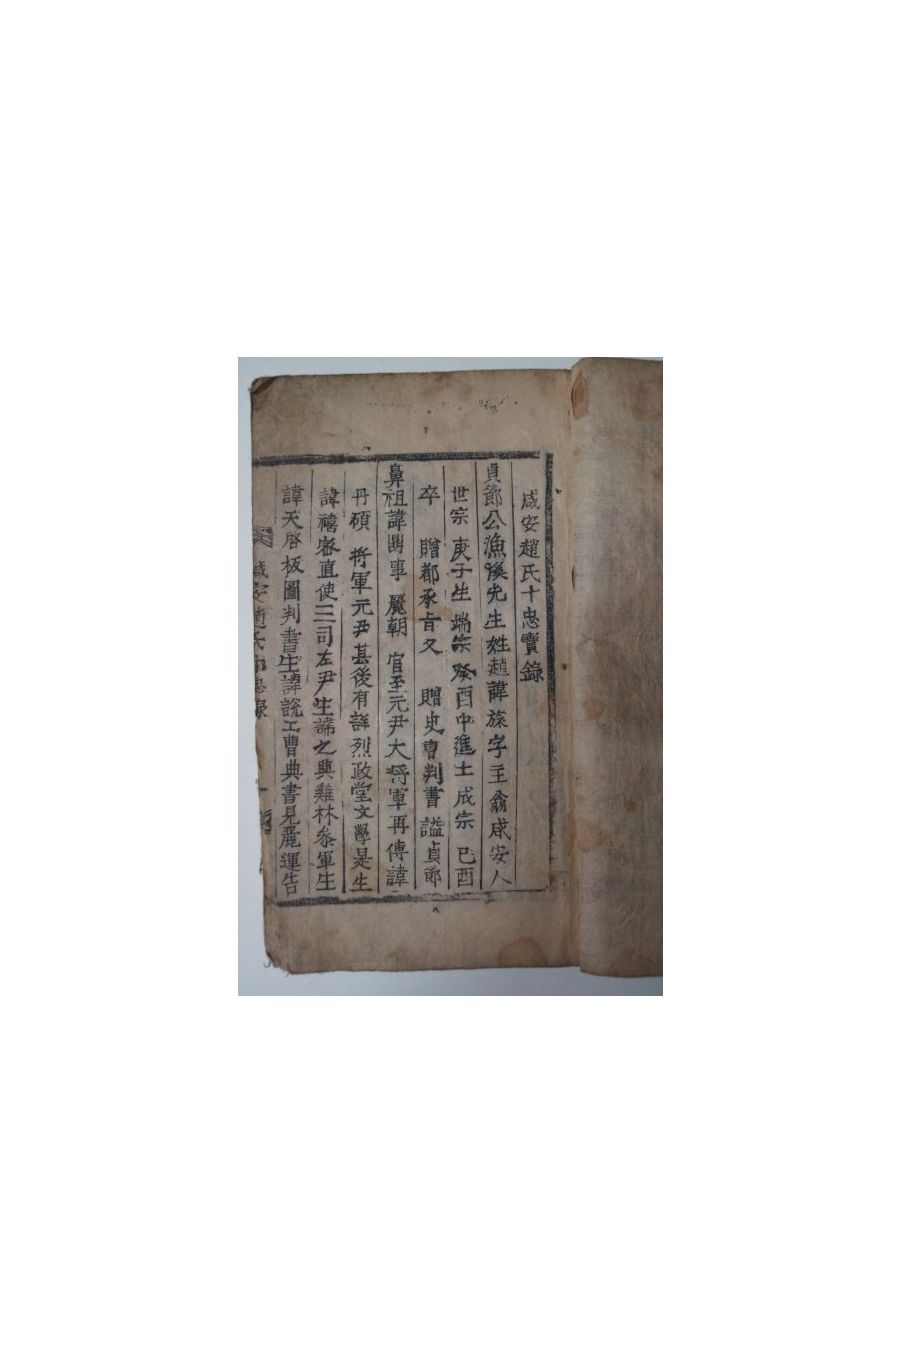 咸安趙氏十忠實錄
貞節公漁溪先生姓趙諱旅字主翁咸安人
世宗 庚子生 端宗 癸酉中進士 成宗 己酉
卒 贈都承旨又 贈吏曹判書 謚貞節
鼻祖諱鼎事 麗朝 官至元尹大將軍再傳諱
丹碩 將軍元尹其後有諱烈政堂文學是生
諱禧密直使三司左尹生諱之興雞林叅軍生
諱天啓版圖判書生諱悅工曹典書見麗運告
咸安趙氏十忠錄